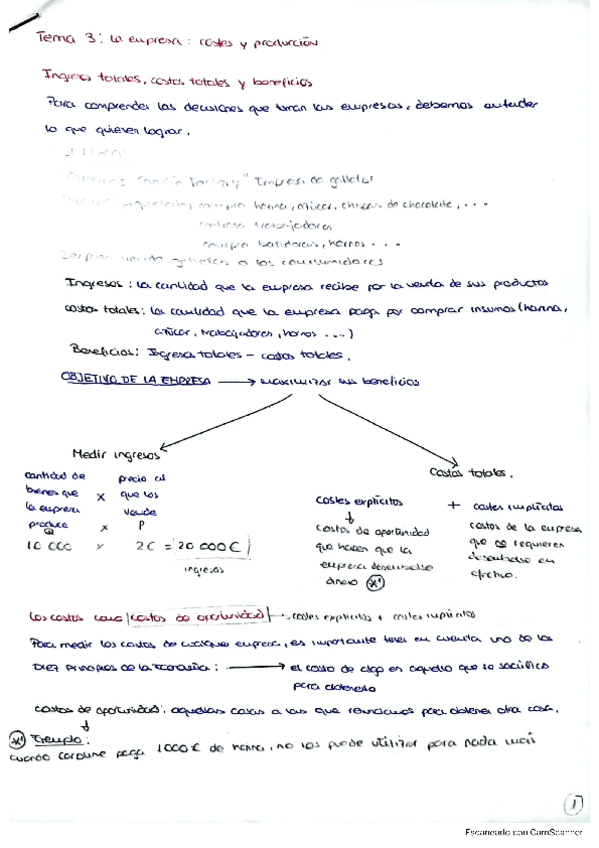 Tema 3: La empresa: costes y producción
Ingresos totales, costos totales y beneficios
Para comprender las decisiones que toman las empresas, debemos entender
lo que quieren lograr.
Factory" Empresa de galletas
compra harina, azúcar, chispas de chocolate, ...
contrata trabajadores
compra batidoras, hornos ...
galletas a los consumidores
Ingresos: la cantidad que la empresa recibe por la venta de sus productos
costos totales: la cantidad que la empresa paga por comprar insumos (harina,
azúcar, trabajadores, hornos ....)
Beneficios: Ingresos totales - costos totales.
OBJETIVO DE LA EMPRESA → maximizar sus beneficios
Medir ingresos
cantidad de bienes que la empresa produce
Q
x
precio al que los vende
P
x
10 000 x 2€ = 20 000€
ingresos
Costos totales.
costes explícitos
costos de oportunidad
que hacen que la
empresa desembolse
dinero *1
+ costes implícitos
costos de la empresa
que no requieren
desembolso en
efectivo.
Los costos como costos de oportunidad → costes explícitos + costes implícitos
Para medir los costos de cualquier empresa, es importante tener en cuenta uno de los
Diez principios de la Economía: → el costo de algo es aquello que se sacrifica
para obtenerlo
costos de oportunidad: aquellas cosas a las que renunciamos para obtener otra cosa.
*1 Ejemplo:
cuando caroline paga 1000€ de harina, no los puede utilizar para nada más
1
Escaneado con CamScanner